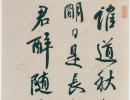 誰道秋
期日是長
君醉隨